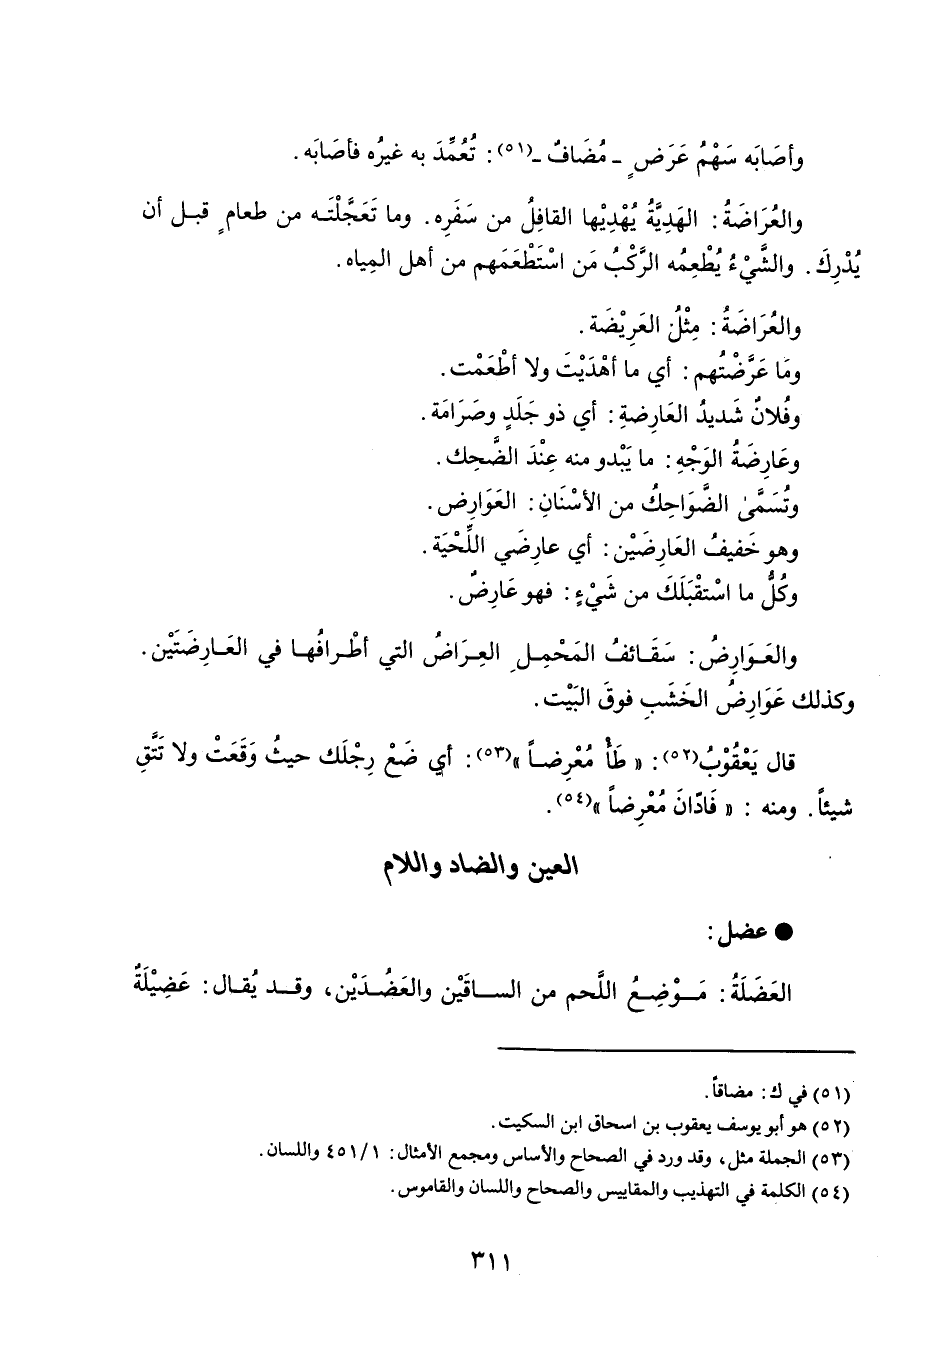 وأصَابَه سَهْمُ عَرَضٍ - مُضَافٌ -(٥١): تُعُمِّدَ به غيرُه فأصَابَه.
والعُرَاضَةُ: الهَدِيَّةُ يُهْدِيْها القافِلُ من سَفَرِه. وما تَعَجَّلْتَه من طعامٍ قبل أن
يُدْرِكَ. والشَّيْءُ يُطْعِمُه الرَّكْبُ مَن اسْتَطْعَمَهم من أهل المِياه.
والعُرَاضَةُ: مِثْلُ العَرِيْضَة.
ومَا عَرَّضْتُهم: أي ما أهْدَيْتَ ولا أطْعَمْت.
وفُلانٌ شَديدُ العَارِضةِ: أي ذو جَلَدٍ وصَرَامَة.
وعَارِضَةُ الوَجْهِ: ما يَبْدو منه عِنْدَ الضَّحِك.
وتُسَمَّىٰ الضَّوَاحِكُ من الأسْنَانِ: العَوَارِض.
وهو خَفيفُ العَارِضَيْن: أي عارِضَي اللِّحْيَة.
وكُلُّ ما اسْتقْبَلَكَ من شَيْءٍ: فهو عَارِضٌ.
والعَوَارِضُ: سَقَائفُ المَحْمِلِ العِرَاضُ التي أطْرافُها في العَارِضَتَيْن.
وكذلك عَوَارِضُ الخَشَبِ فوقَ البَيْت.
قال يَعْقُوْبُ(٥٢): « طَأْ مُعْرِضاً »(٥٣): أي ضَعْ رِجْلَك حيثُ وَقَعَتْ ولا تَتَّقِ
شيئاً. ومنه : « فَادّانَ مُعْرِضاً »(٥٤).
العين والضاد واللام
● عضل:
العَضَلَةُ: مَوْضِعُ اللَّحم من الساقَيْن والعَضُدَيْن، وقد يُقال: عَضِيْلَةٌ
(٥١) في ك: مضاقاً.
(٥٢) هو أبو يوسف يعقوب بن اسحاق ابن السكيت.
(٥٣) الجملة مثل، وقد ورد في الصحاح والأساس ومجمع الأمثال: ١/ ٤٥١ واللسان.
(٥٤) الكلمة في التهذيب والمقاييس والصحاح واللسان والقاموس.
٣١١